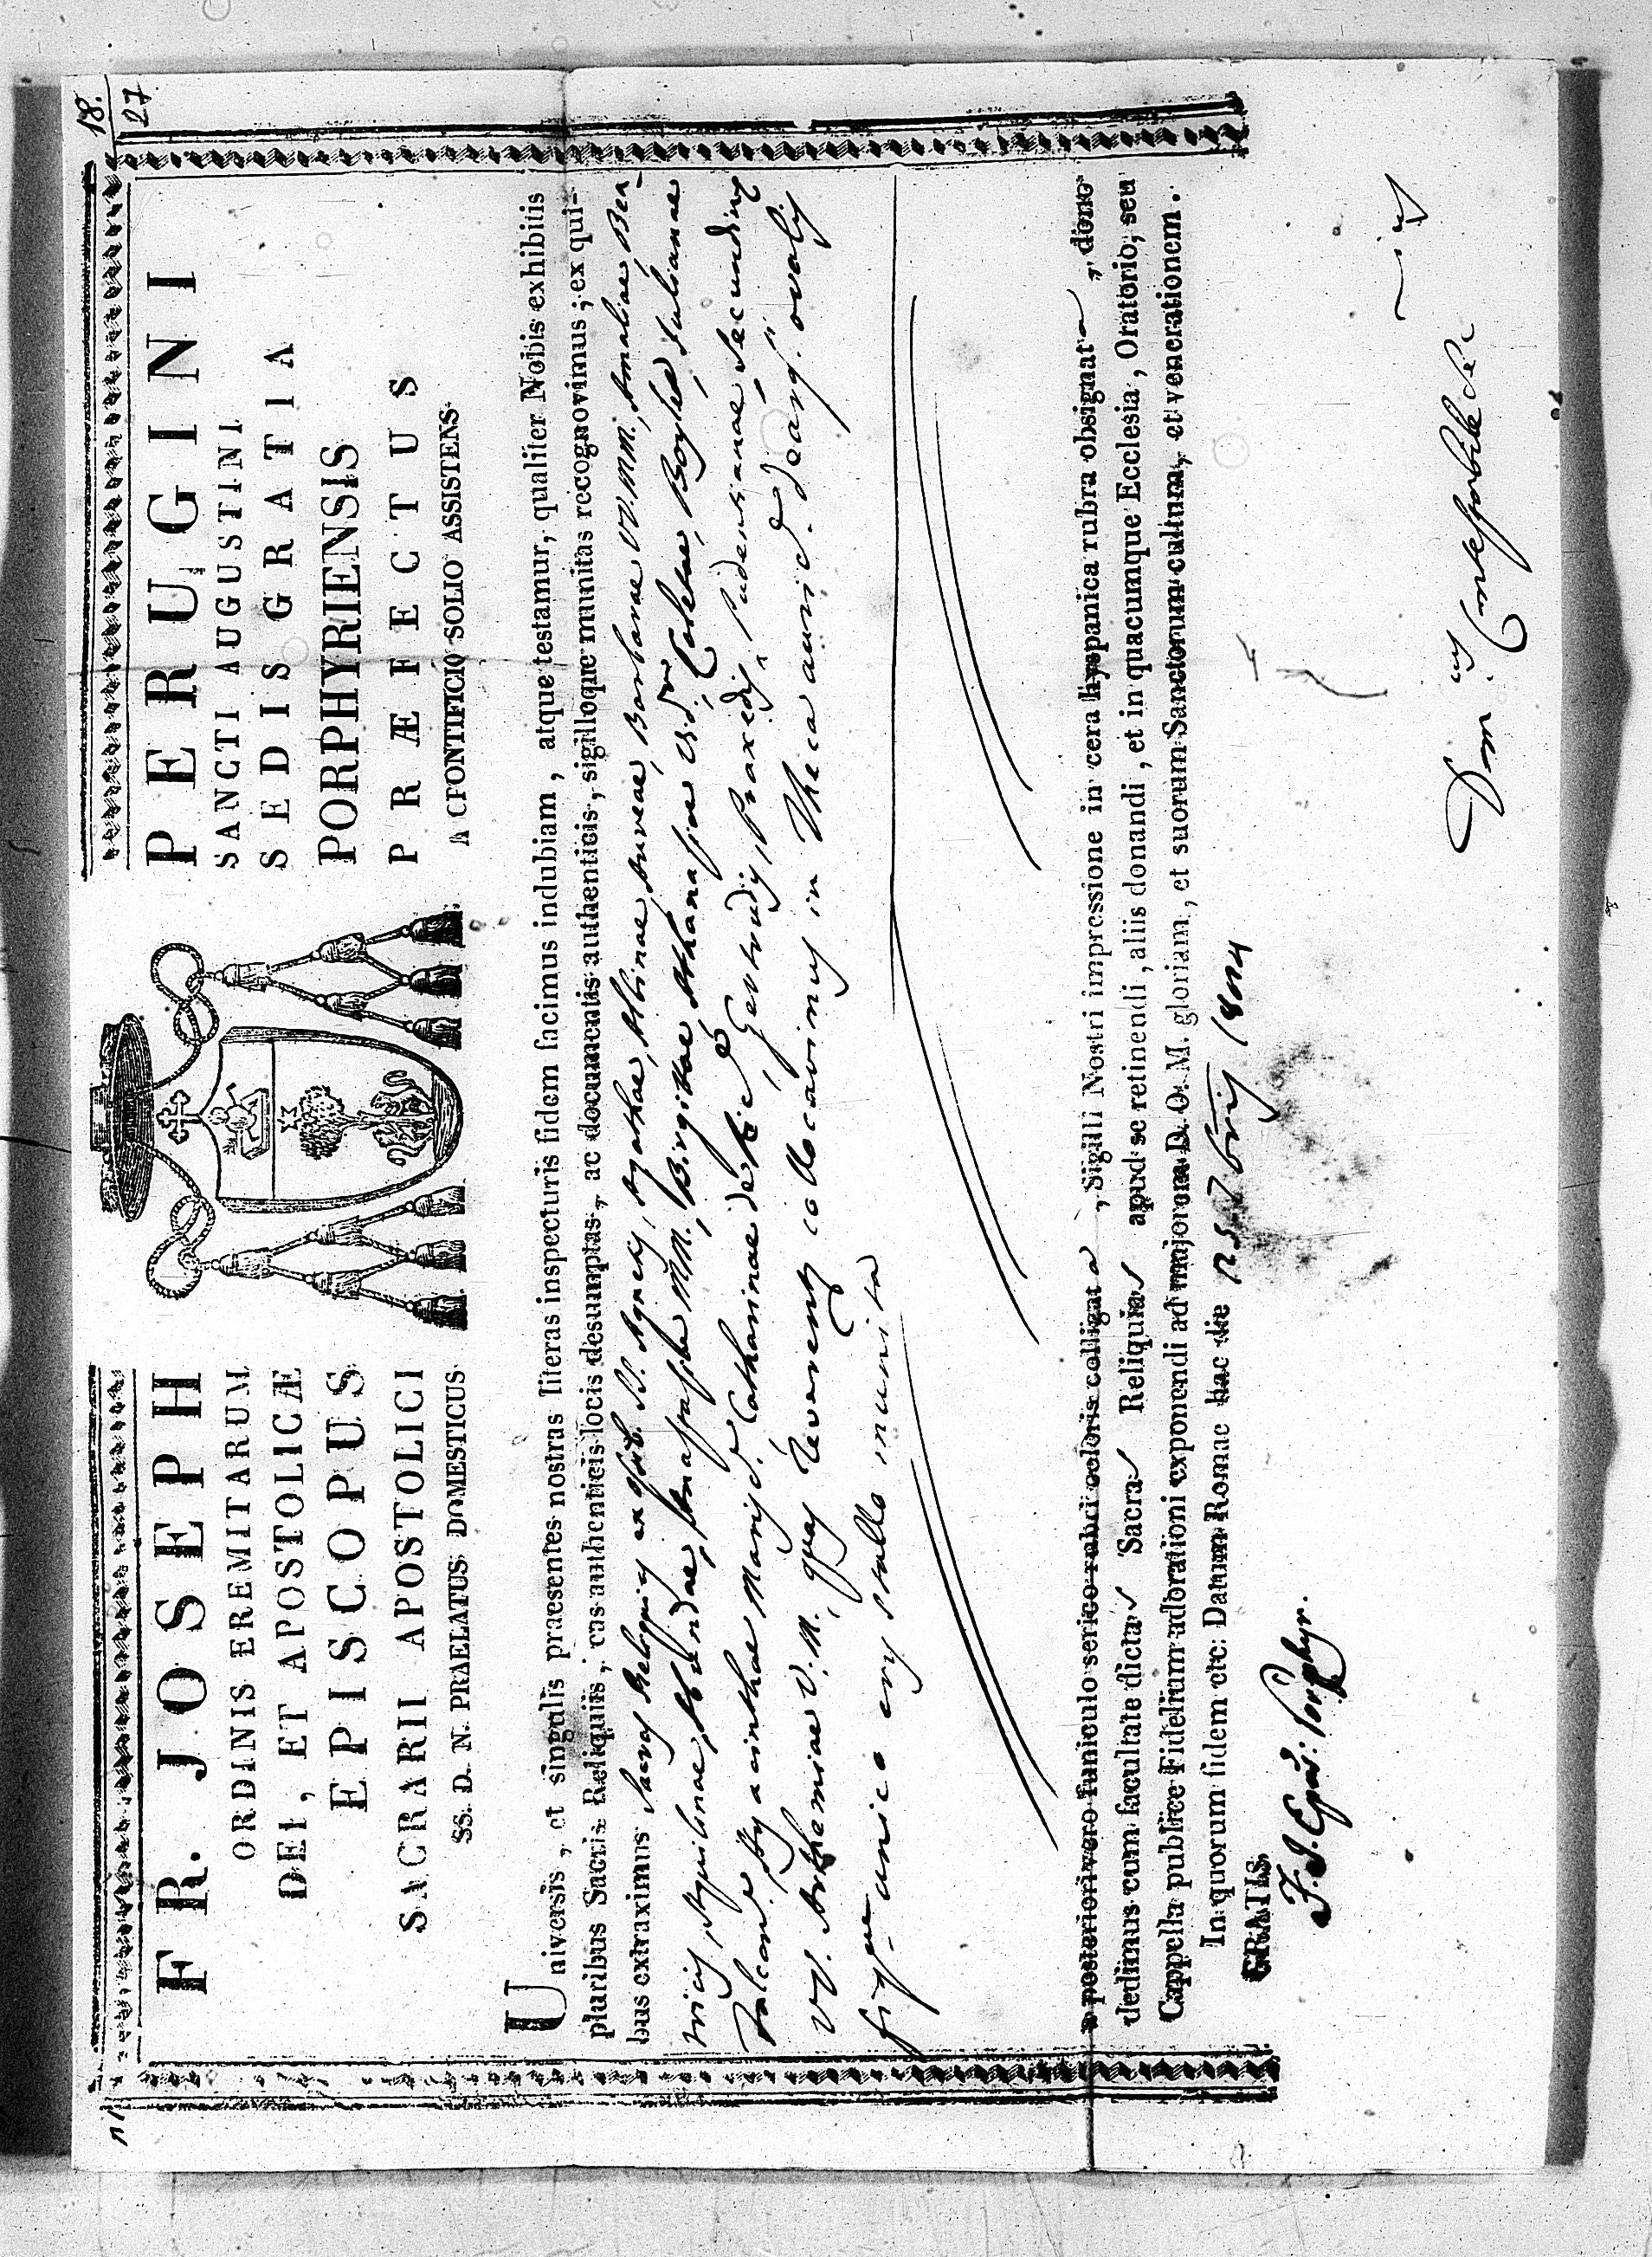 18.
27
FR. JOSEPH PERUGINI
ORDINIS EREMITARUM SANCTI AUGUSTINI
DEI, ET APOSTOLICÆ SEDIS GRATIA
EPISCOPUS PORPHYRIENSIS
SACRARII APOSTOLICI PRÆFECTUS
SS. D. N. PRAELATUS DOMESTICUS A C PONTIFICIO SOLIO ASSISTENS
Universis, et singulis praesentes nostras literas inspecturis fidem facimus indubiam, atque testamur, qualiter Nobis exhibitis
pluribus Sacris Reliquiis, eas authenticis locis desumptas, ac documentis authenticis, sigilloque munitas recognovimus; ex qui-
bus extraximus Sacras Reliquias ex Ossib. SS. Agnetis, Agathae, Albinae, Aureae, Barbarae VV. MM., Amaliae, Bea-
tricis, Aquilinae, Anastasiae MM., Birgittae, Athanasiae Vid.
Falcon. Hyacinthae Marisc. Catharinae de Ric. Gertrudis, Praxedis, Pudentianae, Secundinae
VV. Arthemiae V. M., quas reverenter collocavimus in Theca auric. dearg. ovalis
unico crystallo munita
a posteriori vero funiculo serico rubri coloris colligata, Sigilli Nostri impressione in cera hyspanica rubra obsignata, dono
dedimus cum facultate dictas Sacras Reliquias apud se retinendi, aliis donandi, et in quacumque Ecclesia, Oratorio, seu
Cappella publice Fidelium adorationi exponendi ad majorem D. O. M. gloriam, et suorum Sanctorum cultum, et venerationem.
In quorum fidem etc. Datum Romae hac die 25 7bris
GRATIS.
F. J. Epus: Porphyr.
Dom